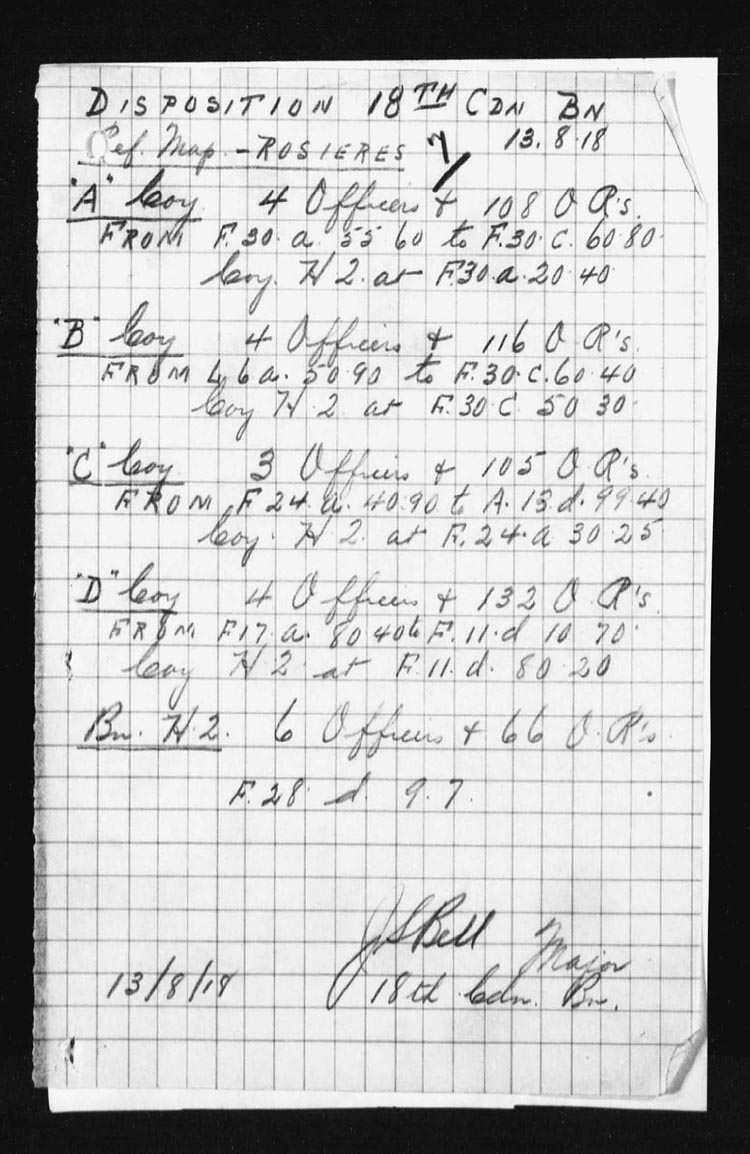 DISPOSITION 18TH CDN BN
Ref. Map. - ROSIERES 13.8.18
"A" Coy 4 Officers & 108 O R's.
FROM F.30.a 55 60 to F.30.C. 60.80.
Coy. H Q. at F.30.a.20.40
"B" Coy 4 Officers & 116 O R's.
FROM L 6 a. 50.90 to F.30.C.60.40
Coy H Q. at F.30.C 50 30.
"C" Coy. 3 Officers & 105 O R's
FROM F 24.a. 40.90 to A.13.d.99.40
Coy. H Q. at F.24.a 30.25
"D" Coy 4 Officers & 132 O R's.
FROM F17.a. 80 40 to F.11.d 10 70.
Coy H Q at F.11.d. 80.20
Bn. H Q. 6 Officers & 66 O.R's.
F.28. d. 9.7.
J S Bell Major
13/8/18 18th Cdn. Bn.